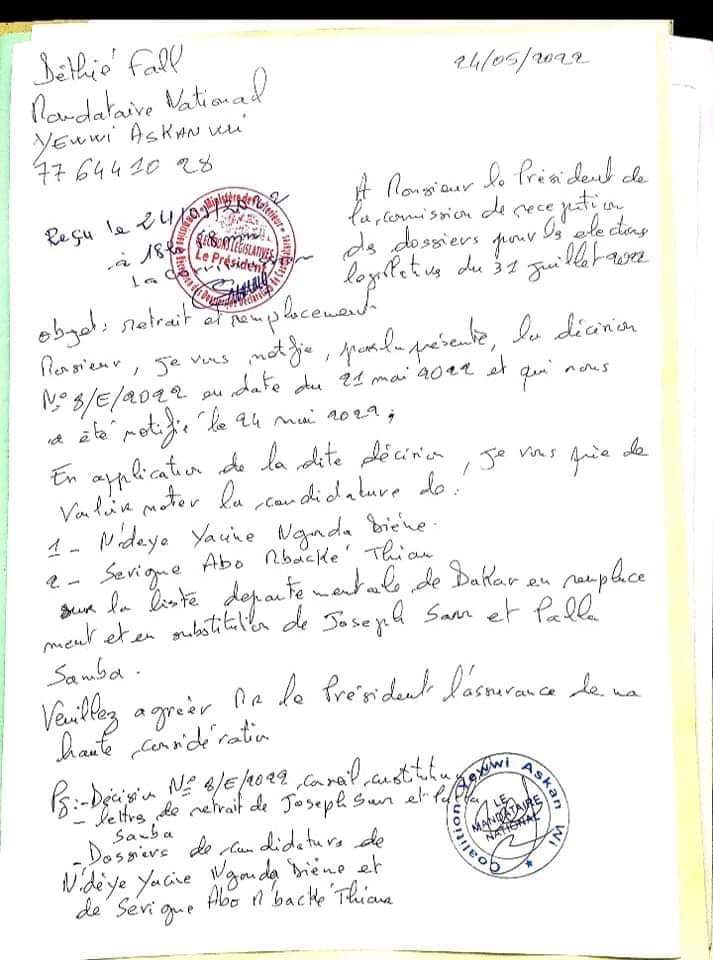 Déthié Fall
24/05/2022
Mandataire National
YEWWI ASKAN WI
77 644 10 28
A Monsieur le Président de
la commission de reception
des dossiers pour les elections
legislatives du 31 juillet 2022
Reçu le 24/05/2022
à 18h
Ministère de l'Intérieur
ELECTIONS LEGISLATIVES
Le Président
objet: retrait et remplacement
Monsieur, je vous notifie, par la présente, la décision
N° 8/E/2022 en date du 21 mai 2022 et qui nous
a été notifié le 24 mai 2022,
En application de la dite décision, je vous prie de
vouloir noter la candidature de:
1 - N'deye Yacine Ngonda Diène.
2 - Serigne Abo Mbacké Thiam
sur la liste departementale de Dakar en remplace
ment et en substitution de Joseph Sarr et Palla
Samba.
Veuillez agréer Mr le Président l'assurance de ma
haute considération
PJ:-Décision N° 8/E/2022 conseil constitu
- lettres de retrait de Joseph Sarr et Palla
Samba
- Dossiers de candidature de
N'dèye Yacine Ngonda Diène et
de Sérigne Abo M'backé Thiam
Coalition Yewwi Askan Wi
LE
MANDATAIRE
NATIONAL